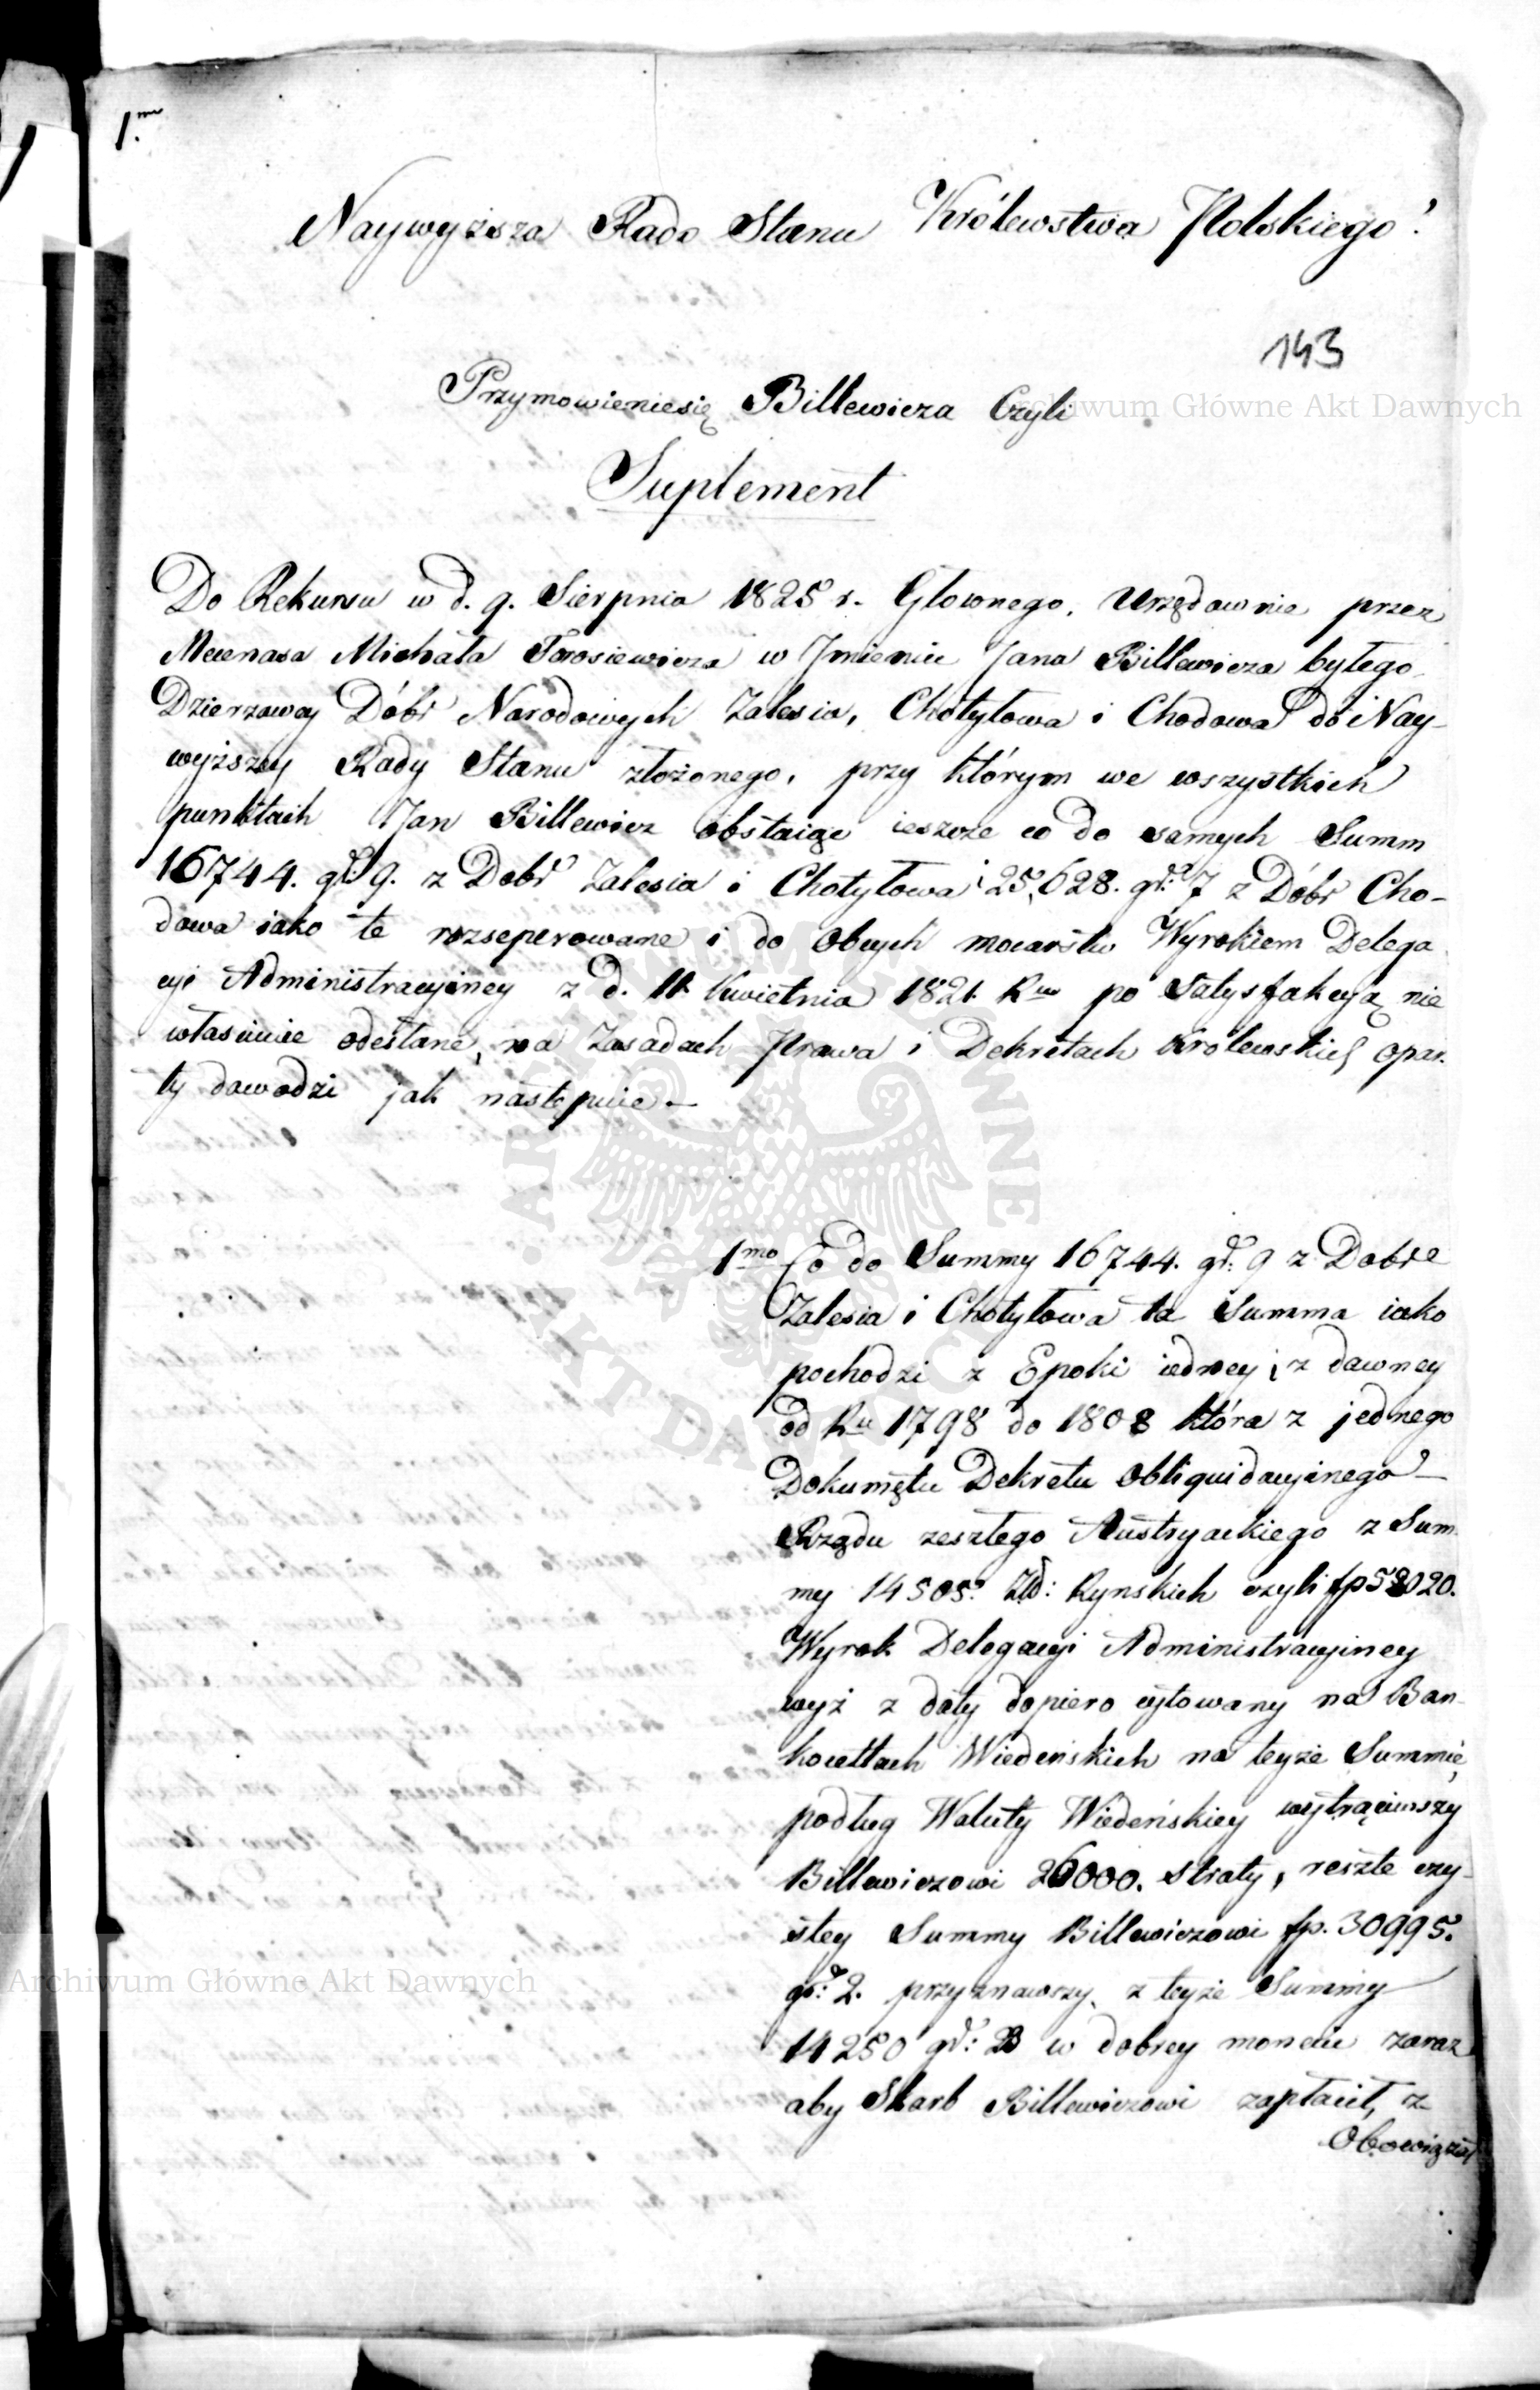 1mo
Naywyższa Rado Stanu Królewstwa Polskiego!
143
Przymowieniesię Billewicza Czyli
Suplement
Do Rekursu w d. 9. Sierpnia 1825 r. Głownego, Urzędownie przez
Mecenasa Michała Tarosiewicza w Jmieniu Jana Billewicza byłego
Dzierzawcy Dóbr Narodowych Zalesia, Chotyłowa i Chodowa do Nay-
wyższey Rady Stanu złożonego, przy którym we wszystkich
punktach Jan Billewicz obstaiąc ieszcze co do samych Summ
16744. gr: 9. z Dobr Zalesia i Chotyłowa i 25,628. gr: 7 z Dóbr Cho-
dowa iako te rozseperowane i do Obcych mocarstw Wyrokiem Delega
cyi Administracyiney z d. 11. Kwietnia 1821. Ru po Satysfakcyą nie
własciwie odesłane, na Zasadach Prawa i Dekretach Królewskich opar-
ty dowodzi jak następuie —
1mo Co do Summy 16744. gr: 9 z Dobre
Zalesia i Chotyłowa ta Summa iako
pochodzi z Epoki iedney i z dawney
od Ru 1798 do 1808 która z jednego
Dokumętu Dekretu Obliquidacyinego —
Rządu zeszłego Austryackiego z Sum-
my 14505. Złł: Rynskich czyli fp 58020.
Wyrok Delegacyi Administracyiney
wyż z daty dopiero cytowany na Ban-
kocetlach Wiedeńskich na teyże Summie,
podług Waluty Wiedeńskiey wytrąciwszy
Billewiczowi 26000. straty, reszte czy-
stey Summy Billewiczowi fp. 30995.
gr: 2. przyznawszy, z teyże Summy
14250 gr: 23 w dobrey monecie zaraz
aby Skarb Billewiczowi zapłacił, z
Obowiązał
Archiwum Główne Akt Dawnych
Archiwum Główne Akt Dawnych
ARCHIWUM GŁÓWNE AKT DAWNYCH